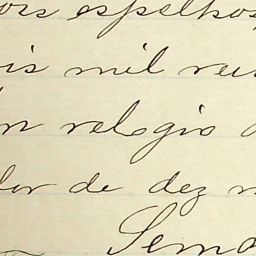 ois espelhos
is mil reis
m relogio
lor de dez
Sem